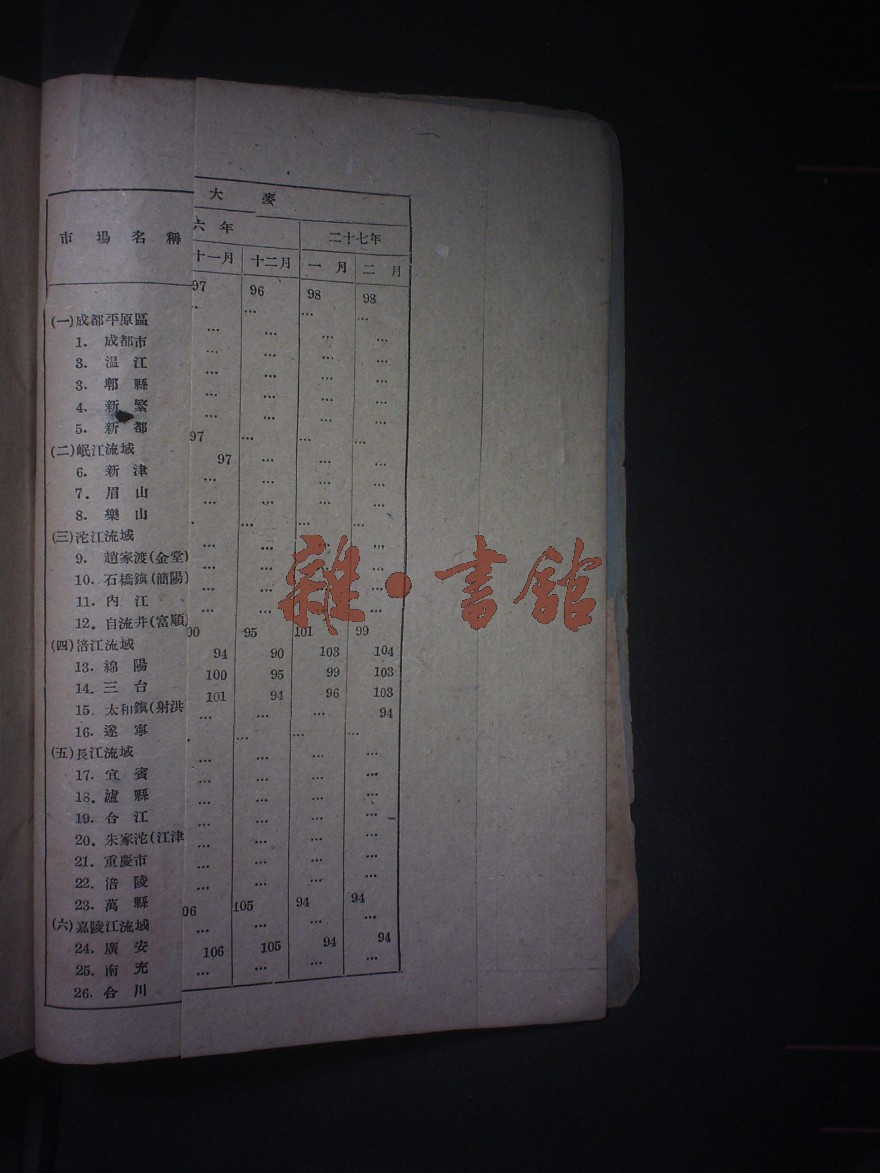 大 麥
市場名稱 六年 二十七年
十一月 十二月 一月 二月
97 96 98 98
(一)成都平原區 .. ... ... ...
1. 成都市 ... ... ... ...
3. 温江 ... ... ... ...
3. 郫縣 ... ... ... ...
4. 新繁 ... ... ... ...
5. 新都 ... ... ... ...
(二)岷江流域 97 ... ... ...
6. 新津 97 ... ... ...
7. 眉山 ... ... ... ...
8. 樂山 ... ... ... ...
(三)沱江流域 . ... ... ...
9. 趙家渡(金堂) ... ... ... ...
10. 石橋鎮(簡陽) ... ... ... ...
11. 內江 ... ... ... ...
12. 自流井(富順) ... ... ... ...
(四)涪江流域 00 95 101 99
13. 綿陽 94 90 103 104
14. 三台 100 95 99 103
15. 太和鎮(射洪 101 94 96 103
16. 遂寧 ... ... ... 94
(五)長江流域 . ... ... ...
17. 宜賓 ... ... ... ...
18. 瀘縣 ... ... ... ...
19. 合江 ... ... ... ...
20. 朱家沱(江津 ... ... ... ...
21. 重慶市 ... ... ... ...
22. 涪陵 ... ... ... ...
23. 萬縣 ... ... ... ...
(六)嘉陵江流域 06 105 94 94
24. 廣安 ... ... ... ...
25. 南充 106 105 94 94
26. 合川 ... ... ... ...
雜·書館